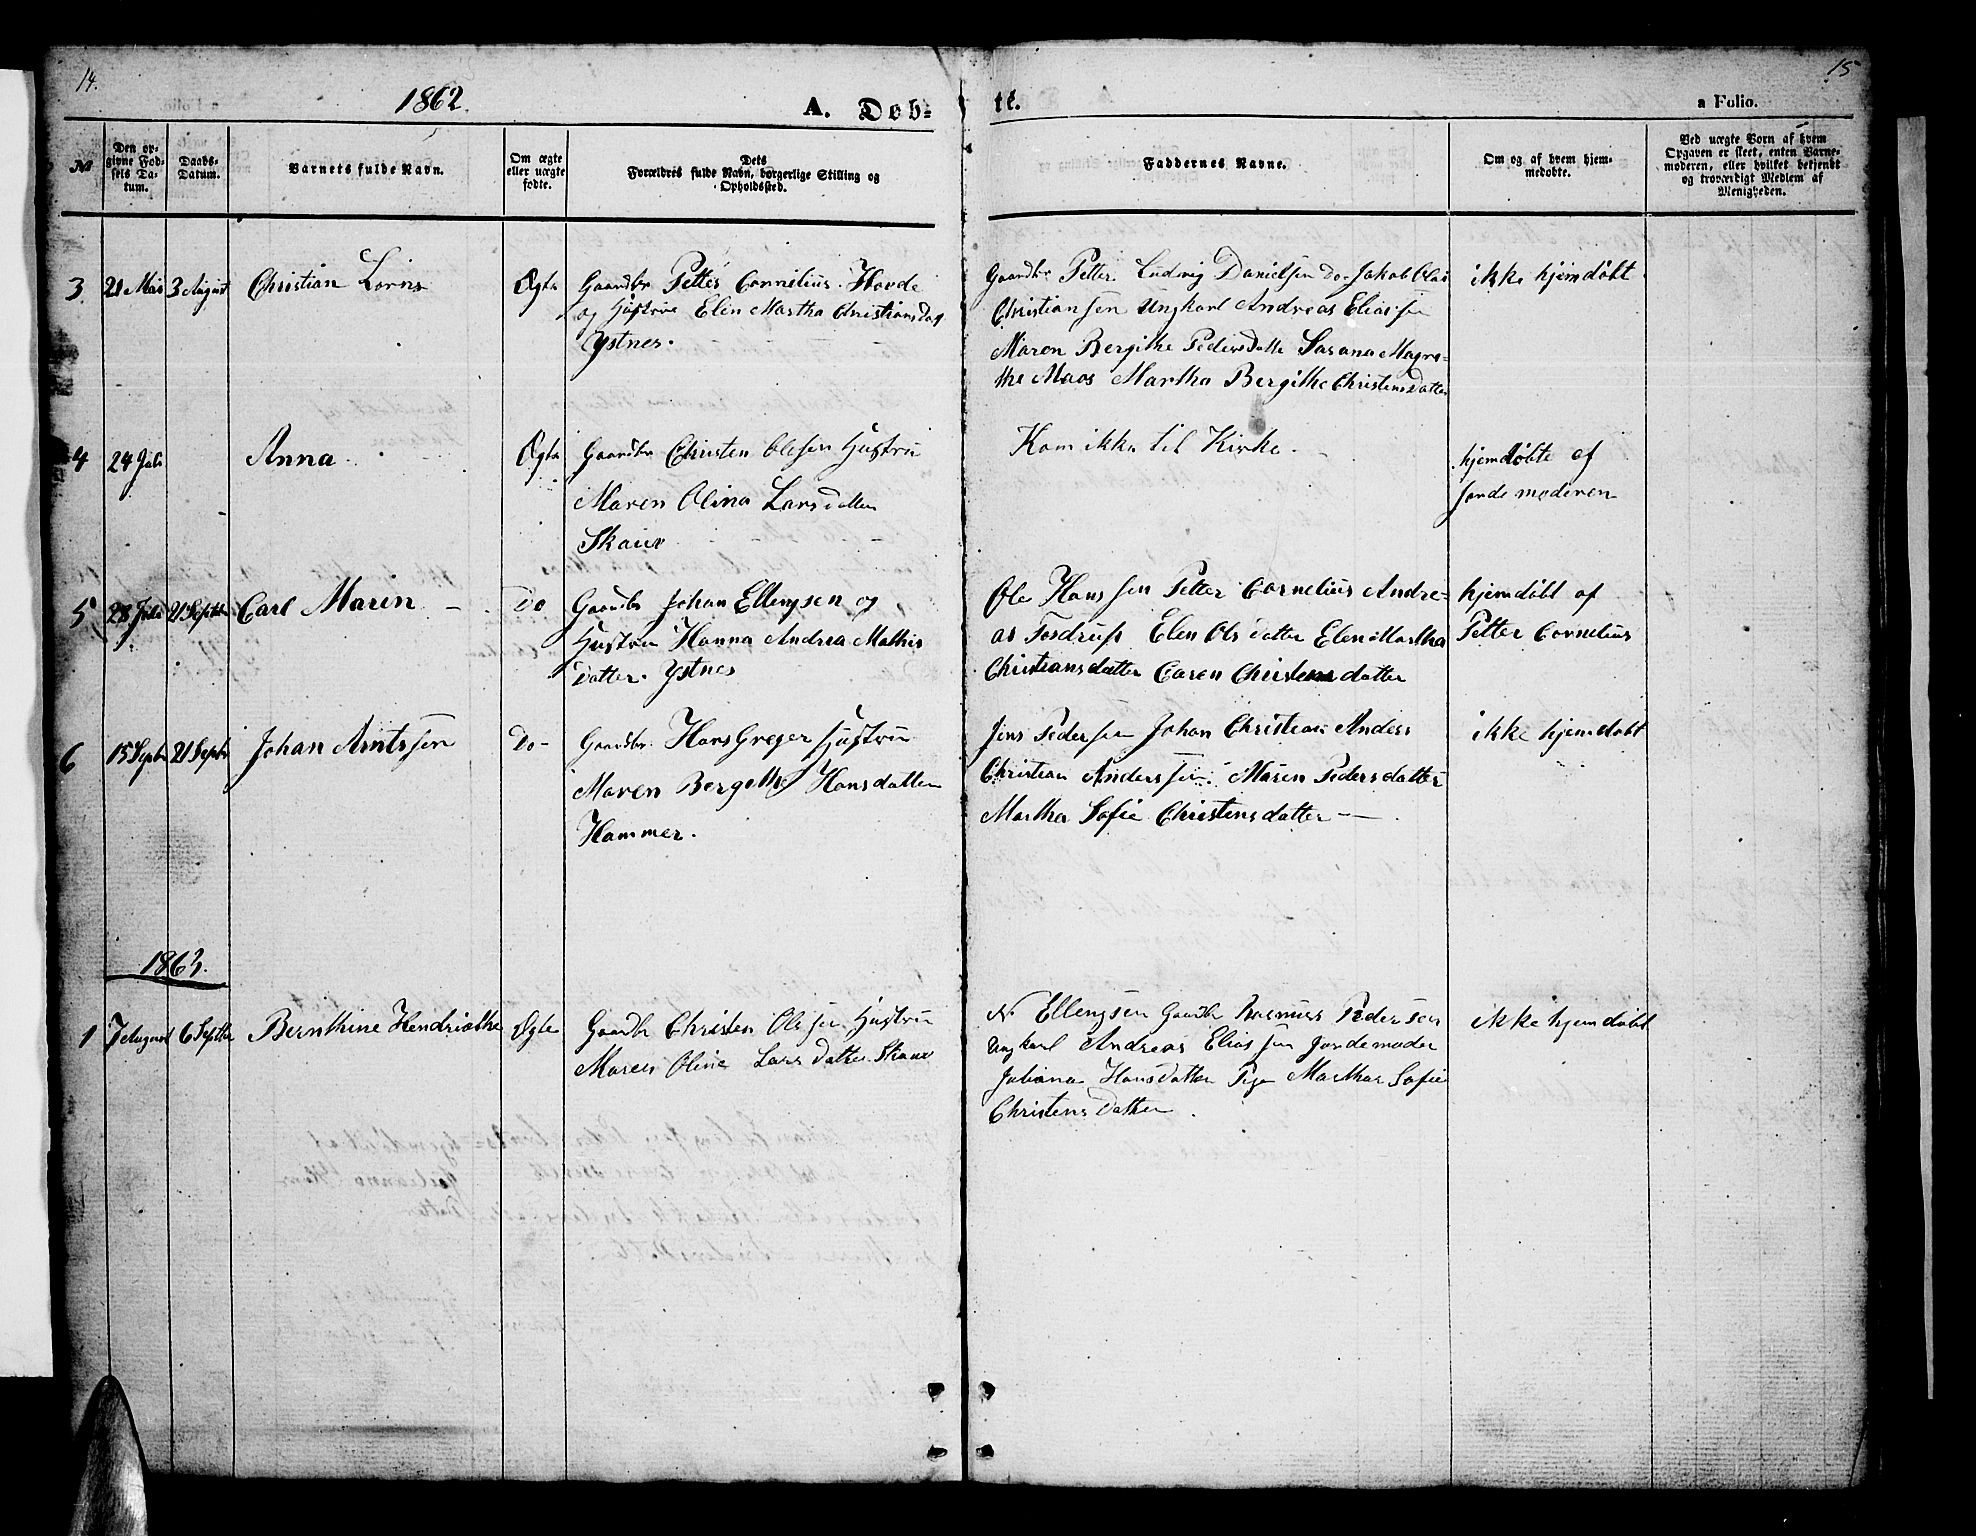 14.
15
1862.
A. Døb-
te.
a Folio.
№
Den op-
givne Fød-
sels Da-
tum.
Daabs-
Datum.
Barnets fulde Navn.
Om ægte
eller uægte
fødte.
Dets
Forældres fulde Navn, borgerlige Stilling og
Opholdssted.
Faddernes Navne.
Om og af hvem hjem-
medøbte.
Ved uægte Børn af hvem
Opgaven er skeet, enten Barne-
moderen, eller hvilket bekjendt
og troværdigt Medlem af
Menigheden.
3 21 Mai 3 August Christian Lorns Ægte Gaardbr Petter Cornelius Hovde
og Hustrue Elen Martha Christiansdag
Ystnes.
Gaardbr Petter Ludvig Danielsen Do Jakob Olai
Christiansen Ungkarl Andreas Eliassen
Maren Bergithe Pedersdatte Sasana Magre-
the Maos Martha Bergithe Christensdatter
ikke hjemdøbt
4 24 Juli Anna Ægte Gaardbr Christen Olesen Hustru
Maren Olina Larsdatter
Skaur
Kom ikke til Kirke.
hjemdøbte af
Jordemoderen
5 28 Juli 21 Septbr Carl Marin Do Gaardbr Johan Ellengsen og
Hustrue Hanna Andrea Mathis
datter. Ystnes
Ole Hanssen Petter Cornelius Andre-
as Tosdrup Elen Olsdatter Elen Martha
Christiansdatter Caren Christensdatter
hjemdøbt af
Petter Cornelius
6 15 Septbr 21 Septbr Johan Arntssen Do- Gaardbr. Hans Greger Hustrue
Maren Bergethe Hansdatter
Hammer.
Jens Pedersen Johan Christian Anders
Christian Anderssen. Maren Pedersdatter
Martha Sofie Christensdatter
ikke hjemdøbt
1863.
1 7 August 6 Septbr Bernthine Hendriethe Ægte Gaardbr Christen Olessen Hustrue
Maren Oline Larsdatter Skaur
N Ellengsen Gaardbr Rasmus Pedersen
Ungkarl Andreas Eliassen Jordemoder
Juliana Hansdatter Pige Martha Sofie
Christensdatter.
ikke hjemdøbt